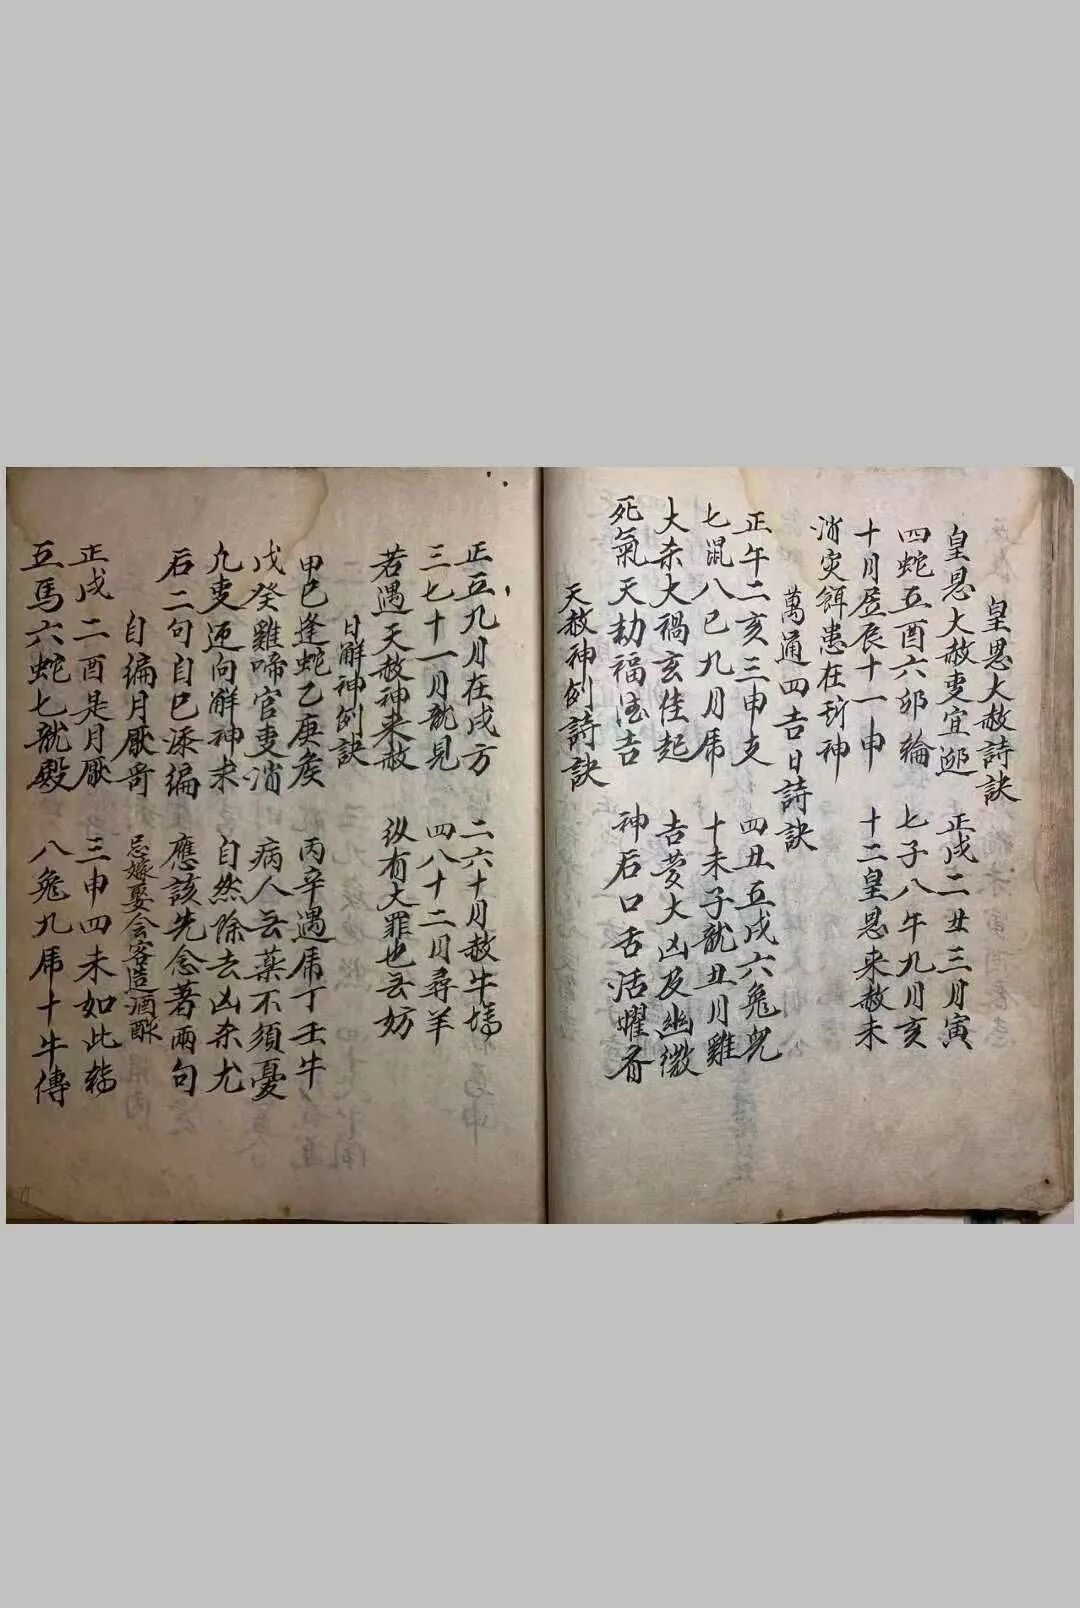 皇恩大赦詩訣
皇恩大赦叓宜遊 正戌二丑三月寅
四蛇五酉六卯輪 七子八午九月亥
十月居辰十一申 十二皇恩来赦未
消灾餌患在神
萬通四吉日詩訣
正午二亥三申支 四丑五戌六兔兒
七鼠八巳九月席 十未子龍丑月雞
大杀大禍玄隹起 吉夢大凶及幽微
死氣天劫福德吉 神后口舌活耀有
天赦神例詩訣
正五九月在戌方 二六十月赦牛塲
三七十一月龍見 四八十二月尋羊
若遇天赦神来赦 纵有大罪也无妨
日解神例訣
甲巳逢蛇乙庚矦 丙辛遇席丁壬牛
戊癸雞啼官叓消 病人无藥不須憂
九叓迎向解神求 自然除去凶杀尤
后二句自巳添编 應該先念著兩句
自编月厭哥 忌嫁娶会客造酒酢
正戌二酉是月厭 三申四未如此転
五馬六蛇七龍殿 八兔九席十牛傳